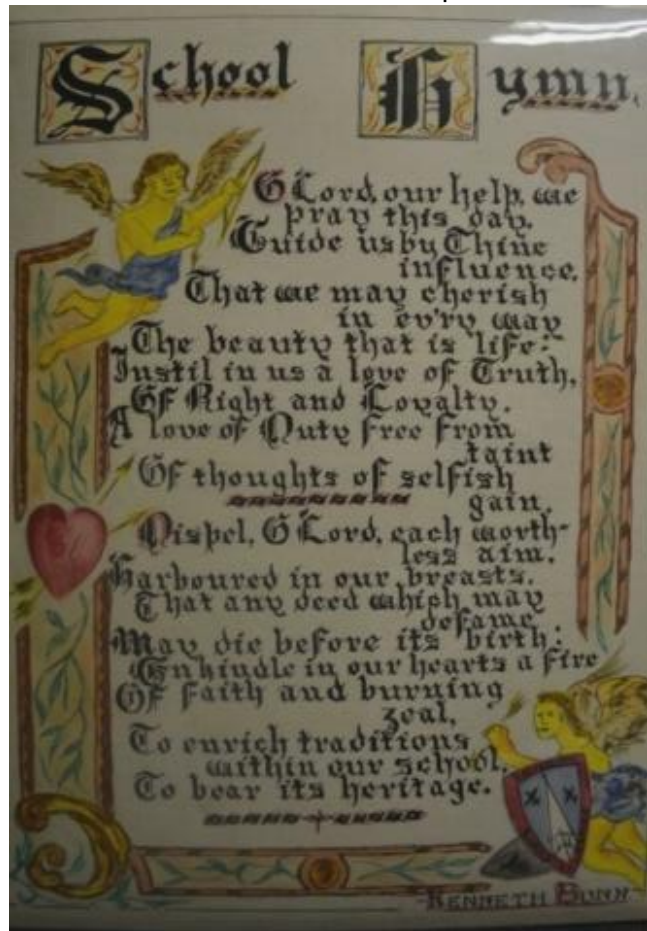 School Hymn.
O Lord, our help, we
pray this day,
Guide us by Thine
influence,
That we may cherish
in ev'ry way
The beauty that is life:
Instil in us a love of Truth,
Of Right and Loyalty,
A love of Duty free from
taint
Of thoughts of selfish
gain.
Dispel, O Lord, each worth-
less aim,
Harboured in our breasts,
That any deed which may
defame
May die before its birth:
Enkindle in our hearts a fire
Of faith and burning
zeal,
To enrich traditions
within our school,
To bear its heritage.
-Kenneth Dunn-